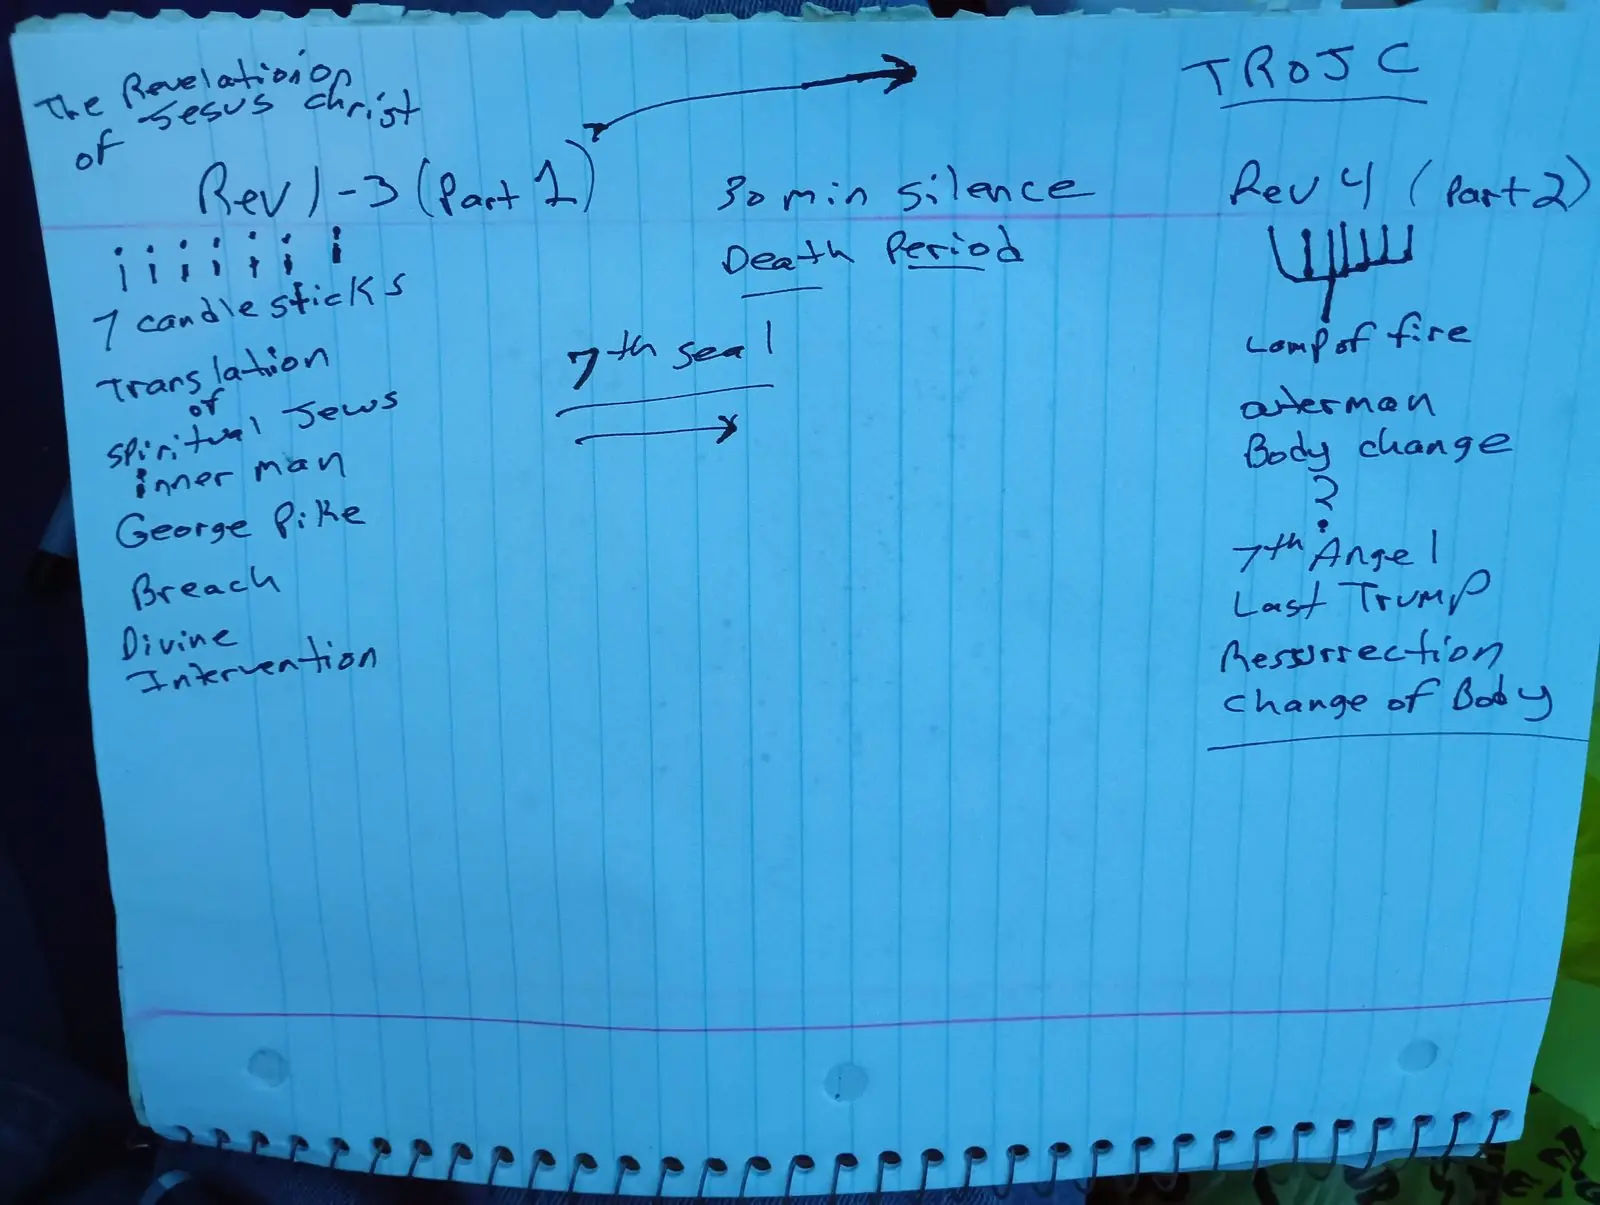 The Revelation
of Jesus Christ
Rev 1-3 (Part 1)
7 candlesticks
Translation
of
Spiritual Jews
inner man
George Pike
Breach
Divine
Intervention
30 min silence
Death Period
7th seal
TROJC
Rev 4 (Part 2)
Lamp of fire
outerman
Body change
?
7th Angel
Last Trump
Ressurrection
change of Body